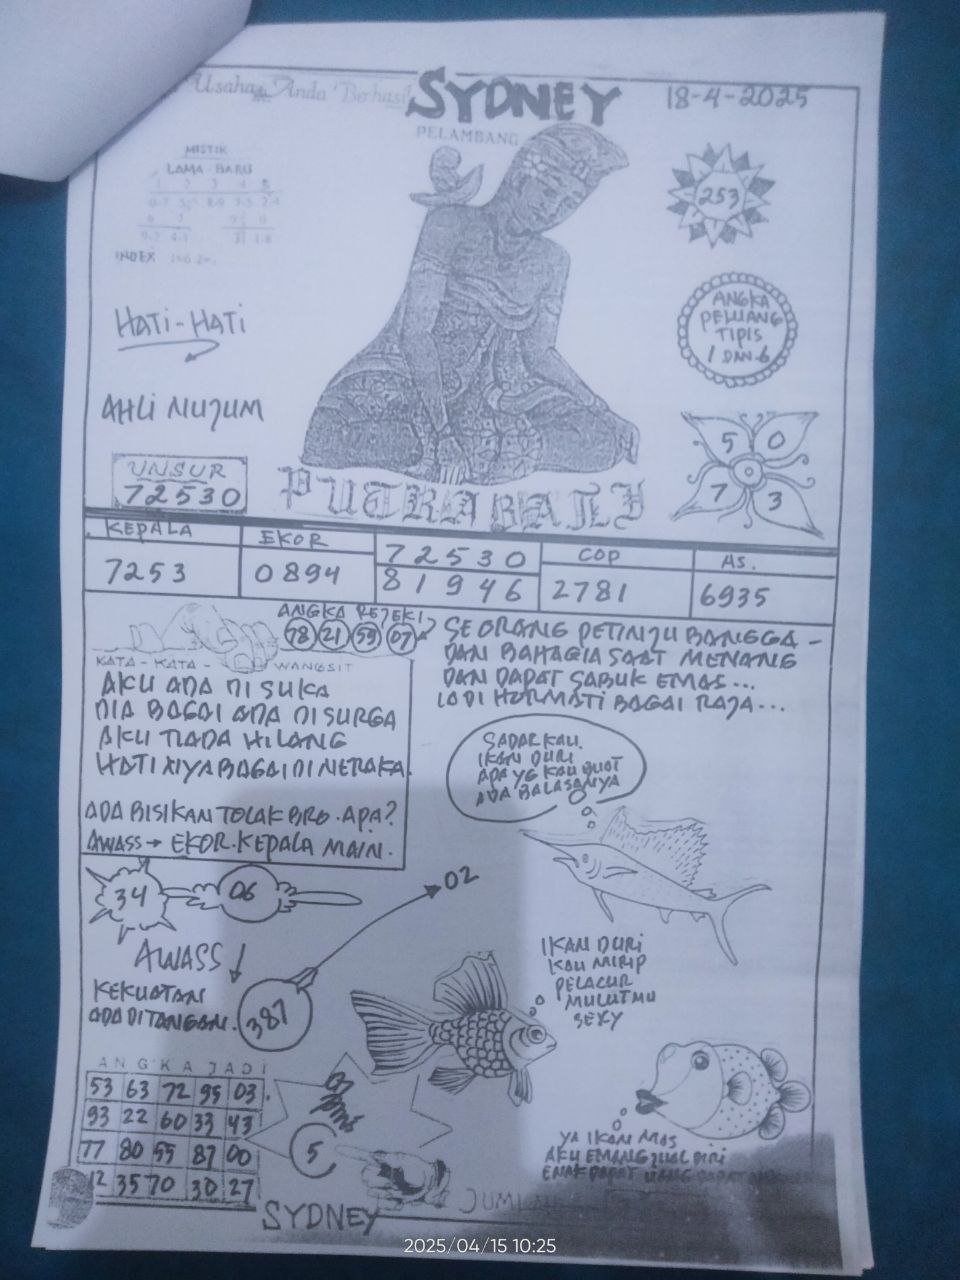 Usaha Anda Berhasil
SYDNEY
18-4-2025
PELAMBANG
MISTIK
LAMA - BARU
1 2 3 4 5
INDEX
253
HATI-HATI
ANGKA
PELUANG
TIPIS
1 DAN 6
AHLI NUJUM
5 0
7 3
UNSUR
72530
PUTRA BALI
KEPALA
7253
EKOR
0894
72530
81946
COP
2781
AS.
6935
ANGKA REJEKI
78 21 59 07
KATA - KATA - WANGSIT
AKU ADA DI SUKA
DIA BAGAI ADA DI SURGA
AKU TIADA HILANG
HATI NYA BAGAI DI NERAKA.
ADA BISIKAN TOLAK BRO. APA?
AWASS → EKOR. KEPALA MAIN.
SEORANG PETINJU BANGGA -
DAN BAHAGIA SAAT MENANG
DAN DAPAT SABUK EMAS...
IA DI HORMATI BAGAI RAJA...
SADAR KAU.
IKAN DURI
APA YG KAU BUAT
ADA BALASANYA
34
06
02
AWASS
KEKUATAN
ADA DI TANGAN.
387
IKAN DURI
KAU MIRIP
PELACUR
MULUTMU
SEXY
ANGKA JADI
53 63 72 95 03
93 22 60 33 43
77 80 55 87 00
12 35 70 30 27
5
YA IKAN MAS
AKU EMANG JUAL DIRI
ENAK DAPAT UANG
SYDNEY
2025/04/15 10:25